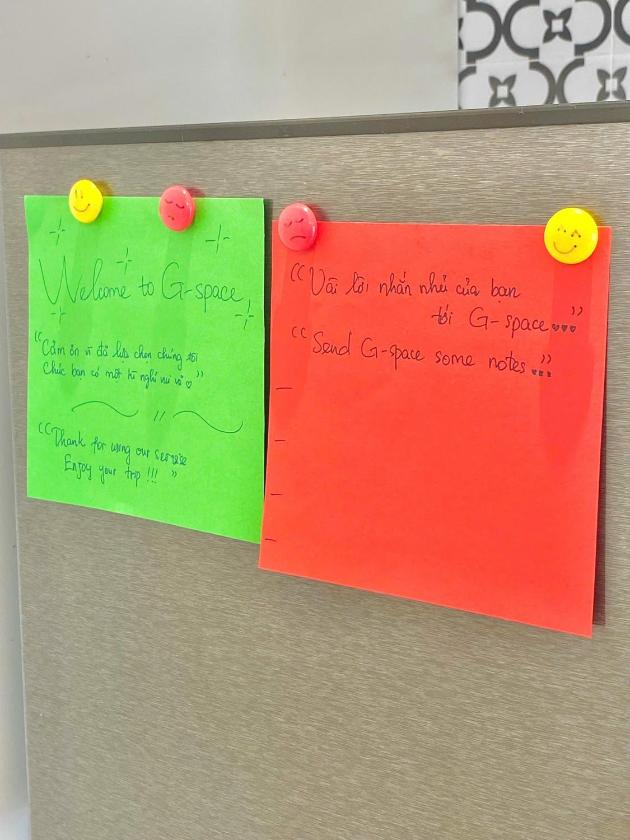 Welcome to G-space
"Cảm ơn vì đã lựa chọn chúng tôi
Chúc bạn có một kì nghỉ vui vẻ ♡"
"Thank for using our service
Enjoy your trip !!! "
"Vài lời nhắn nhủ của bạn
tới G-space ♥♥♥"
"Send G-space some notes ♥♥♥"